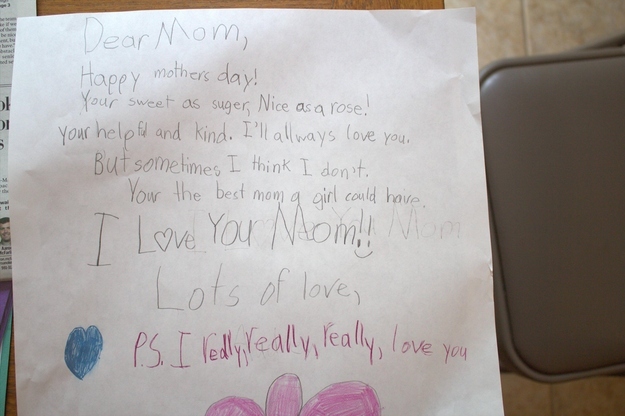 Dear Mom,
Happy mothers day!
Your sweet as suger, Nice as a rose!
Your helpful and kind. I'll allways love you.
But sometimes I think I don't.
Your the best mom a girl could have.
I Love You Mom!! Mom
Lots of love,
P.S. I really, really, really, love you